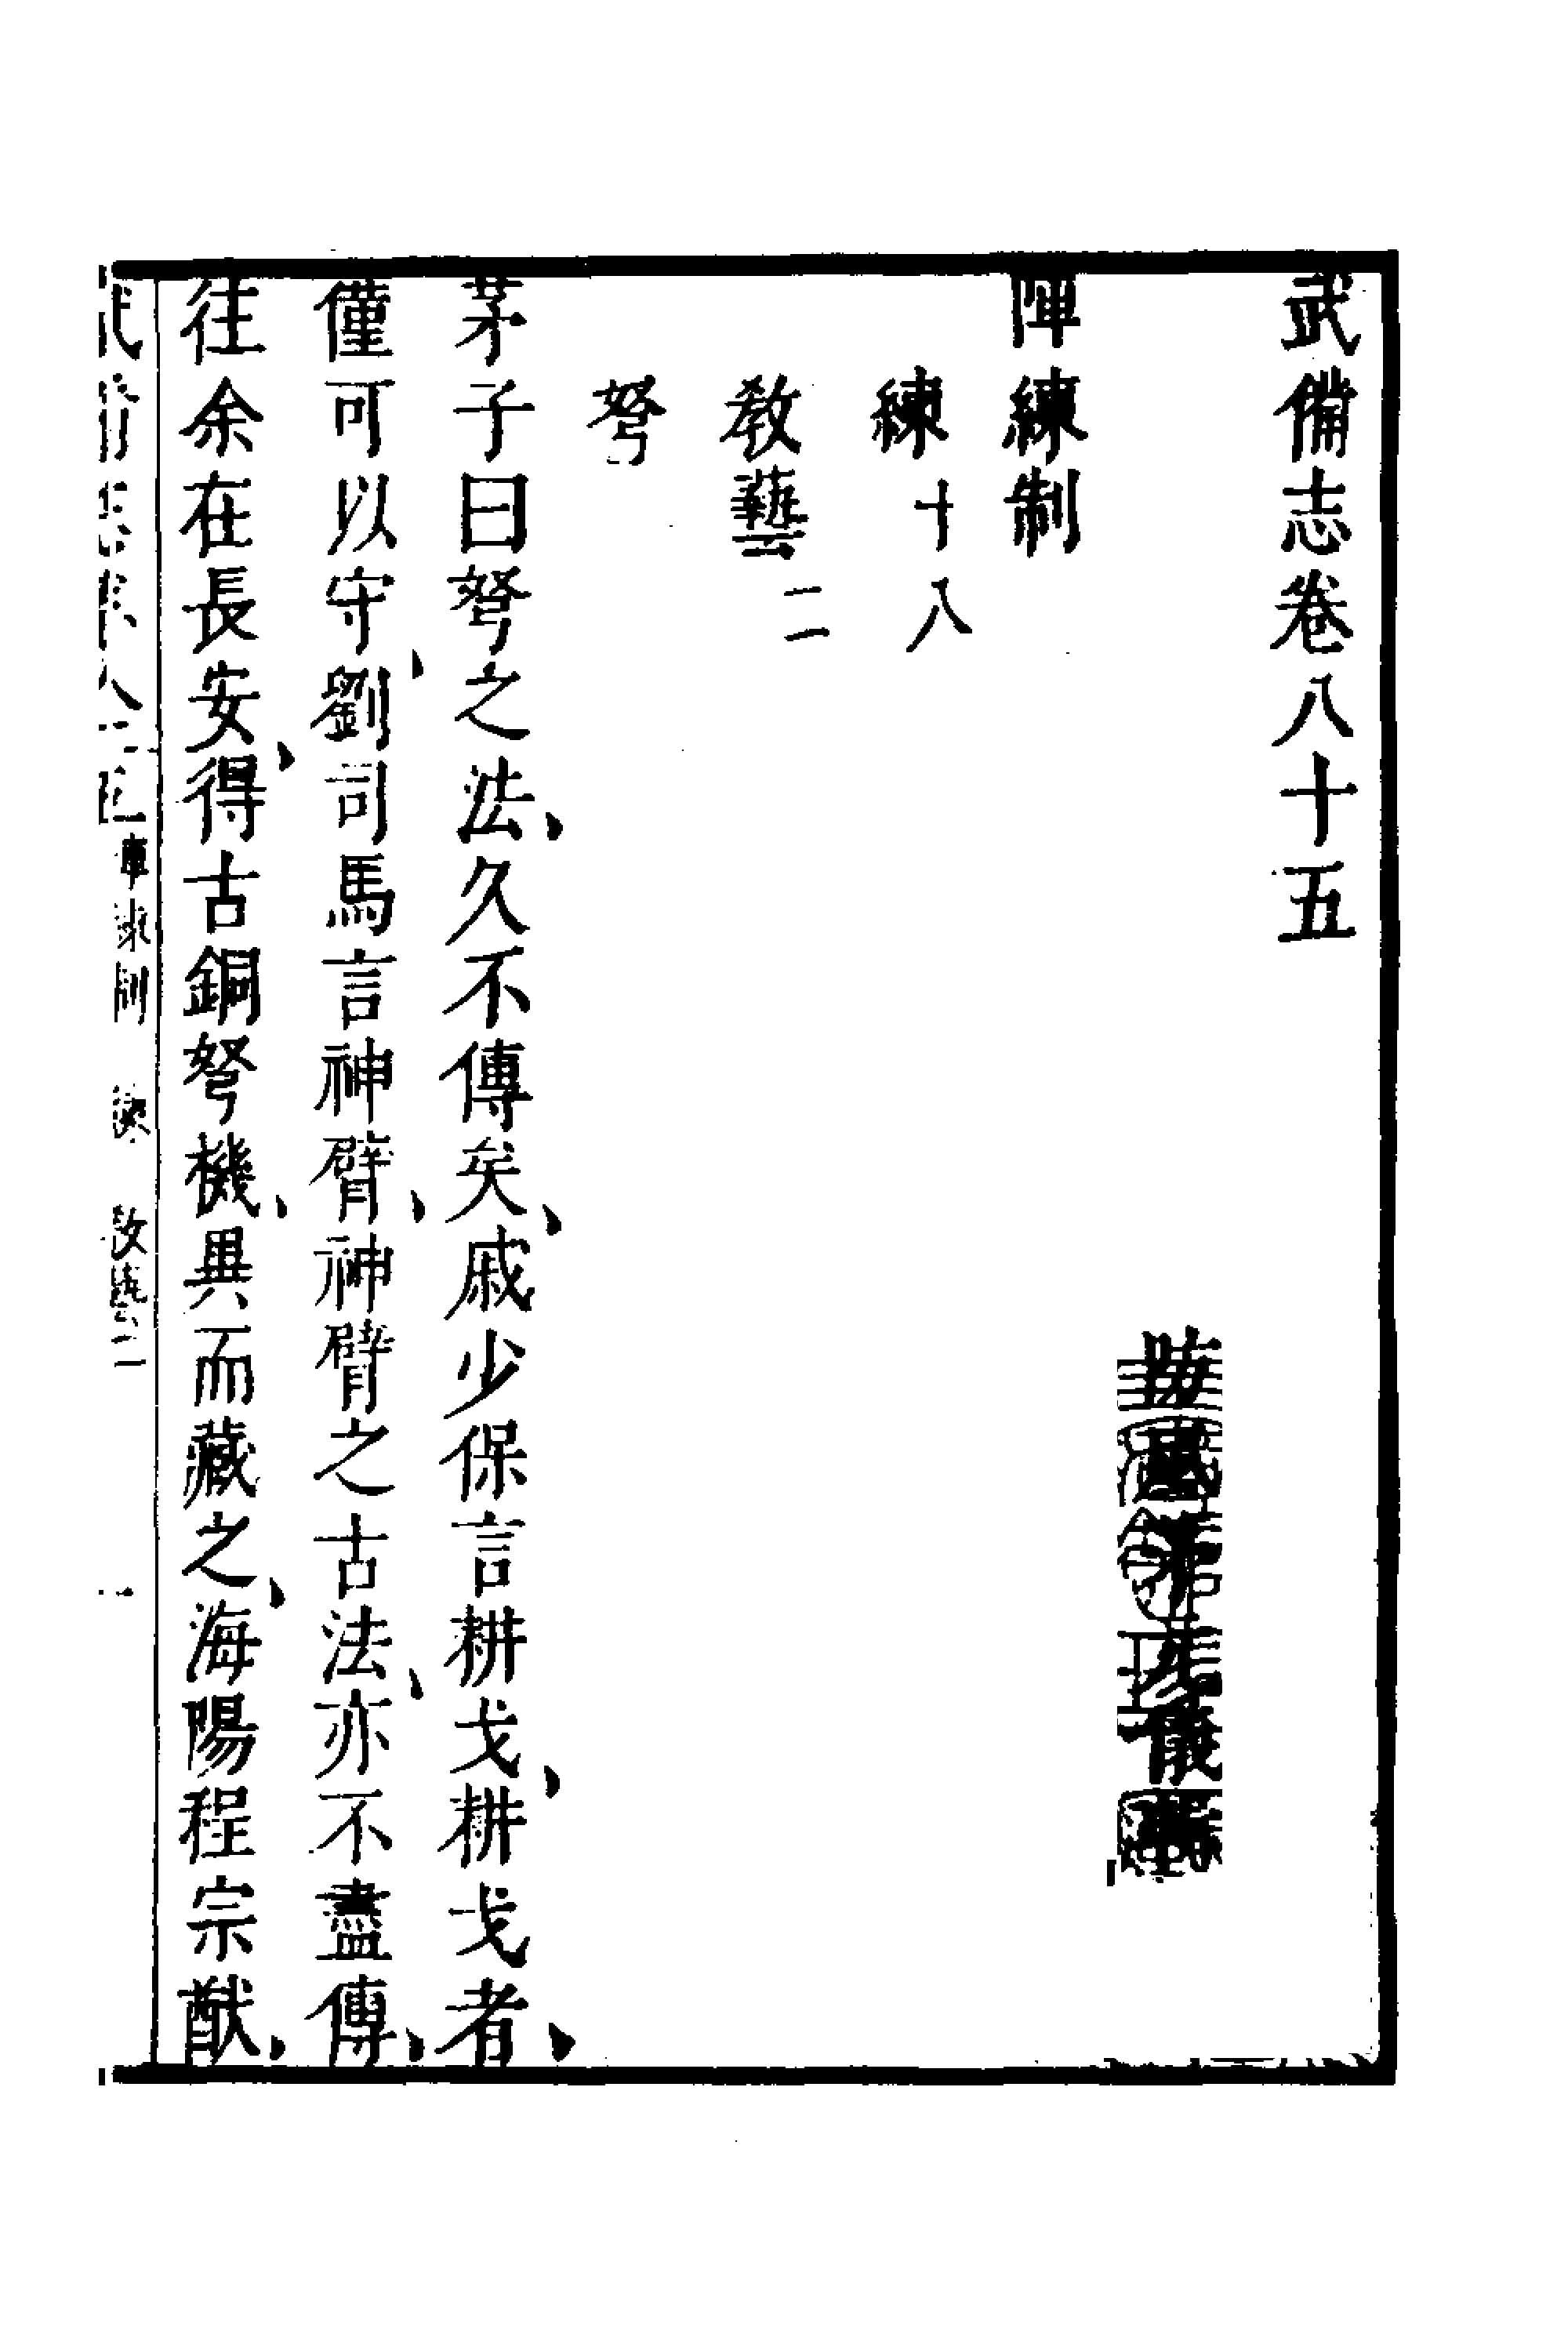 武備志卷八十五
陣練制
練十八
教藝二
弩
茅子曰弩之法、久不傳矣、戚少保言耕戈、耕戈者、
僅可以守、劉司馬言神臂、神臂之古法、亦不盡傳、
往余在長安、得古銅弩機、異而藏之、海陽程宗猷、